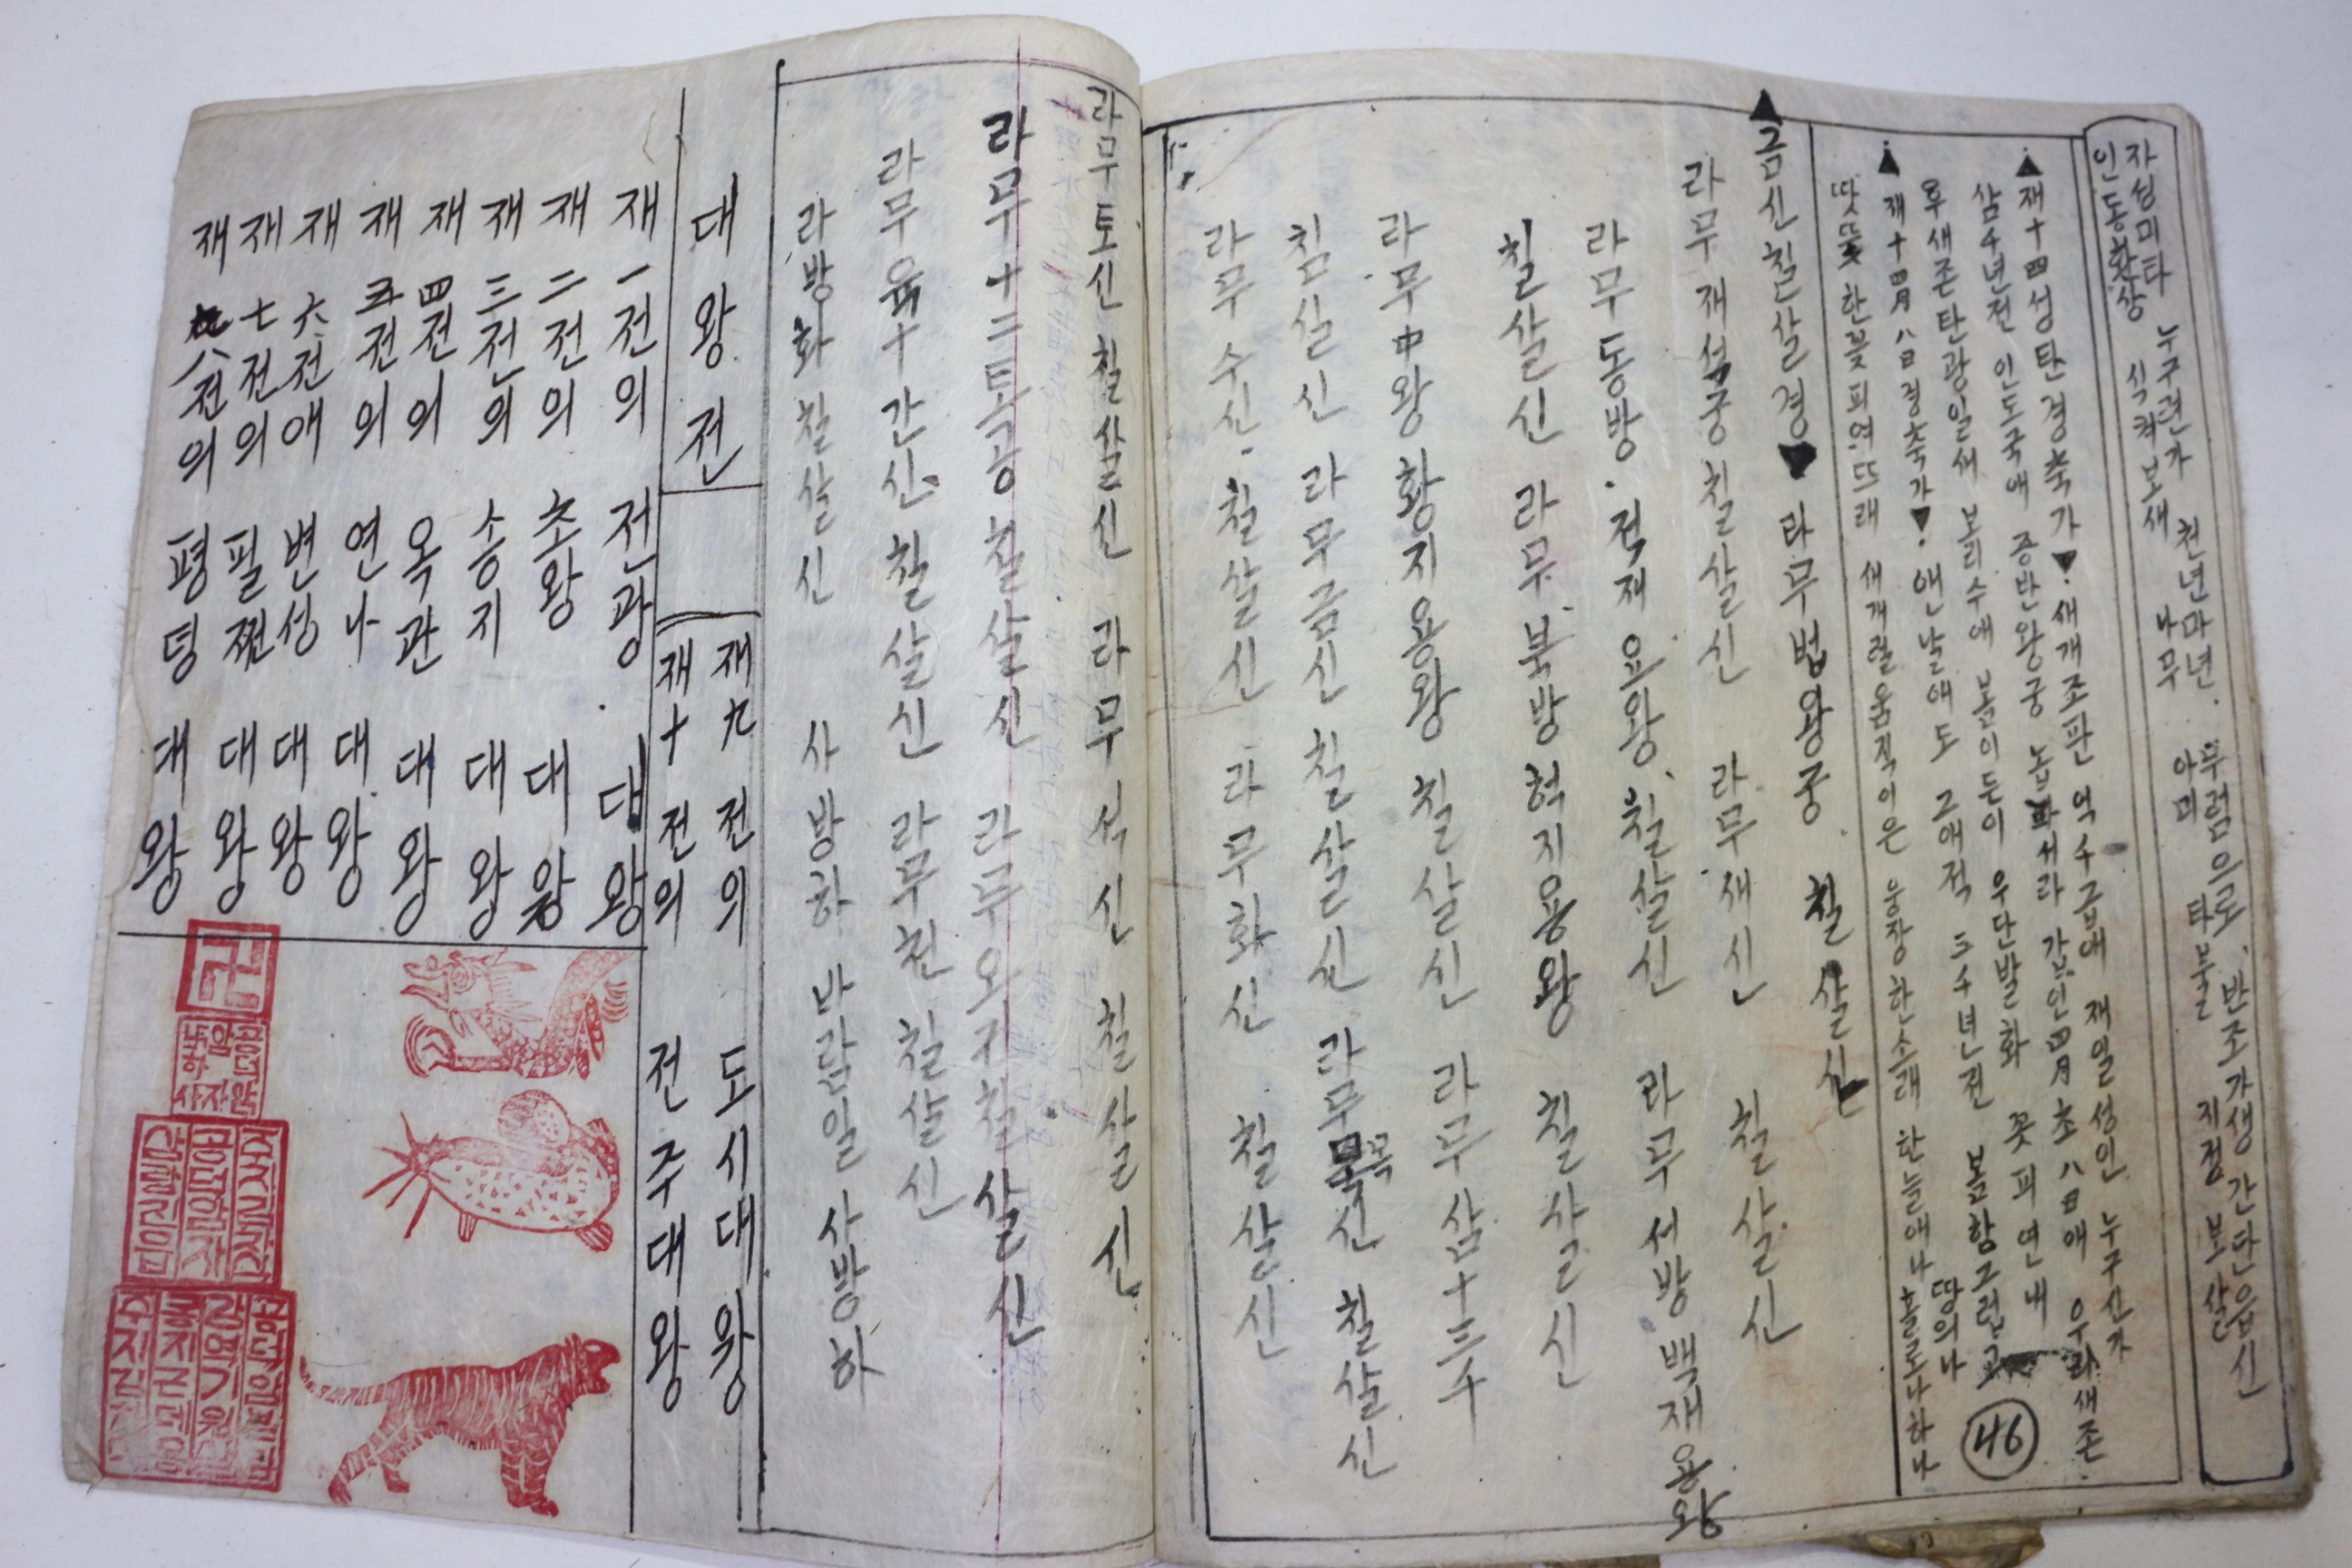 자성미타 누구련가 천년마년 무럼으로 반조가생 간단읍신
인동화상 식켜보새 나무 아미 타불 지정보살
▲재十四성탄경축가▼ 새개조판 억수급애 재일성인 누구신가
삼千년전 인도국애 증반왕궁 갑인四月초八日애 우리새존
우새존탄광일새 보리수애 봄이든이 우단발화 꽃피연내
▲재十四月八日경축가▼ 앤낱애도 그애적 三千년전 봄함그런고
땃뜻한봇피여뜨래 새개럴움직이은 웅장한소래 한늘애나 땅의나 흘로나하나
46
▲금신칠살경▼ 라무법왕궁 칠살신
라무재석궁칠살신 라무새신 칠살신
라무동방 적재요왕 칠살신 라무서방백재용왕
칠살신 라무북방헉지용왕 칠살신
라무中왕황지용왕 칠살신 라무삼十三수
침실신 라무금신 칠살신 라무목신 칠살신
라무수신 칠살신 라무화신 칠살신
라무토신 칠살신 라무석신 칠살신
라무十二토공칠살신 라무오귀칠살신
라무육十간신칠살신 라무천칠살신
라방화칠살신 사방하 바람일 사방하
대왕전
재九전의 도시대왕
재十전의 전주대왕
재一전의 전광대왕
재二전의 초왕대왕
재三전의 송지대왕
재四전의 옥관대왕
재五전의 연나대왕
재六전애 변성대왕
재七전의 필쩐대왕
재八전의 평텅대왕
卍